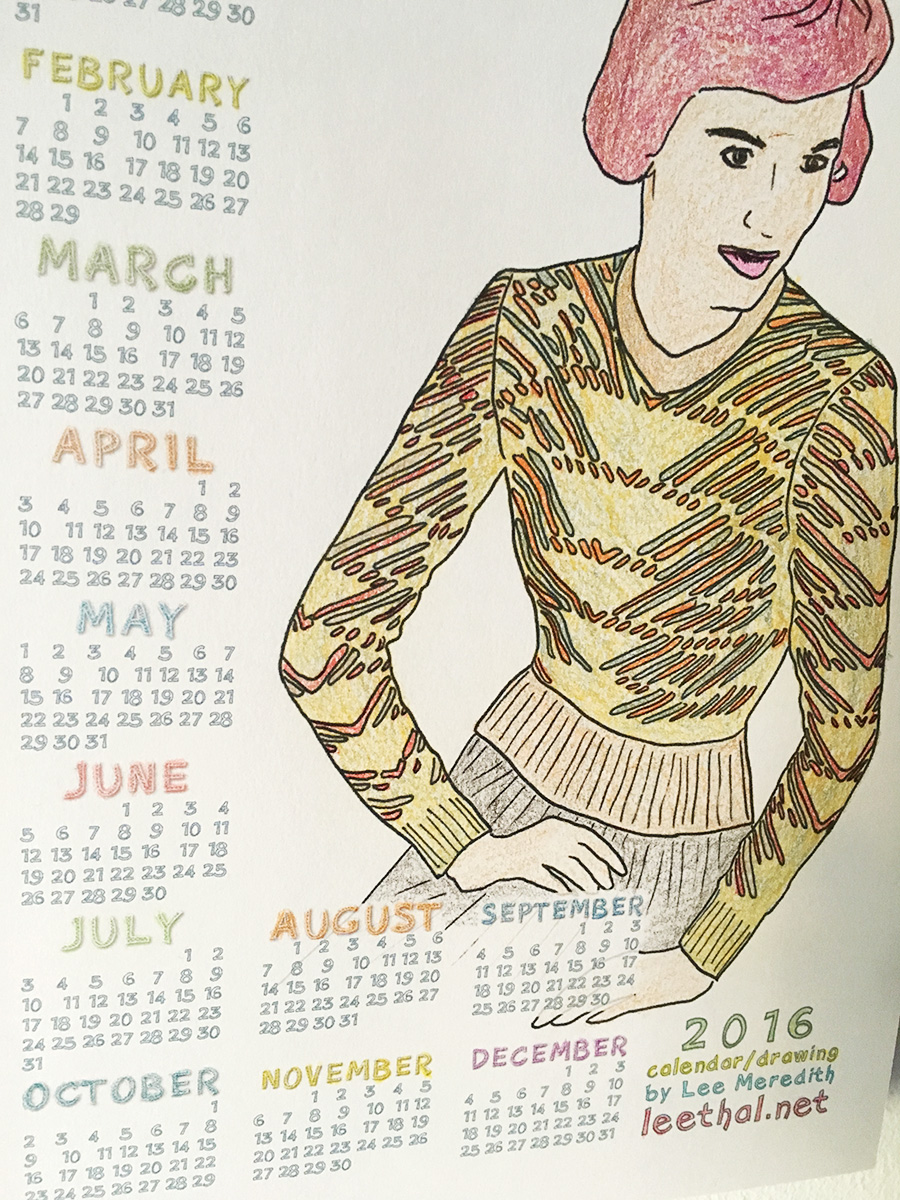 31 30
FEBRUARY
1 2 3 4 5 6
7 8 9 10 11 12 13
14 15 16 17 18 19 20
21 22 23 24 25 26 27
28 29
MARCH
1 2 3 4 5
6 7 8 9 10 11 12
13 14 15 16 17 18 19
20 21 22 23 24 25 26
27 28 29 30 31
APRIL
1 2
3 4 5 6 7 8 9
10 11 12 13 14 15 16
17 18 19 20 21 22 23
24 25 26 27 28 29 30
MAY
1 2 3 4 5 6 7
8 9 10 11 12 13 14
15 16 17 18 19 20 21
22 23 24 25 26 27 28
29 30 31
JUNE
1 2 3 4
5 6 7 8 9 10 11
12 13 14 15 16 17 18
19 20 21 22 23 24 25
26 27 28 29 30
JULY
1 2
3 4 5 6 7 8 9
10 11 12 13 14 15 16
17 18 19 20 21 22 23
24 25 26 27 28 29 30
31
AUGUST
1 2 3 4 5 6
7 8 9 10 11 12 13
14 15 16 17 18 19 20
21 22 23 24 25 26 27
28 29 30 31
SEPTEMBER
1 2 3
4 5 6 7 8 9 10
11 12 13 14 15 16 17
18 19 20 21 22 23 24
25 26 27 28 29 30
OCTOBER
1
2 3 4 5 6 7 8
9 10 11 12 13 14 15
16 17 18 19 20 21 22
23 24 25 26 27 28 29
NOVEMBER
1 2 3 4 5
6 7 8 9 10 11 12
13 14 15 16 17 18 19
20 21 22 23 24 25 26
27 28 29 30
DECEMBER
1 2 3
4 5 6 7 8 9 10
11 12 13 14 15 16 17
18 19 20 21 22 23 24
25 26 27 28 29 30 31
2016
calendar/drawing
by Lee Meredith
leethal.net